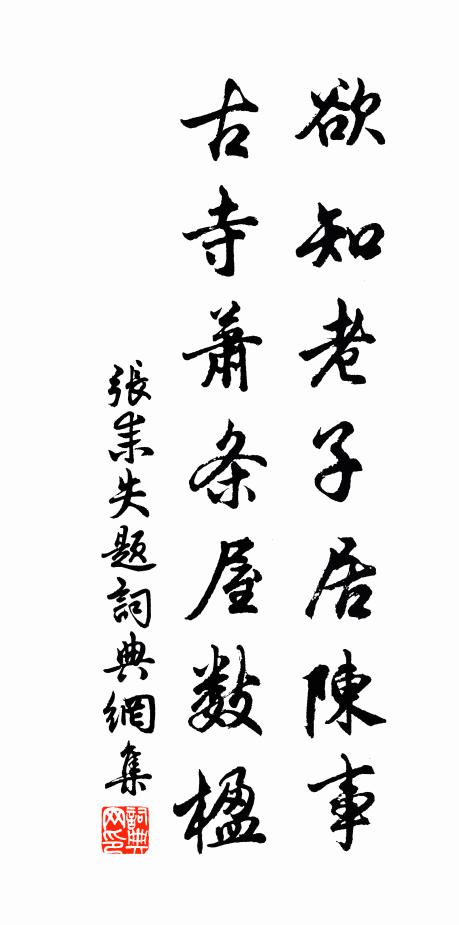 欲知老子居陳事
古寺蕭条屋数楹
張耒失題詞典網集
詞典网印